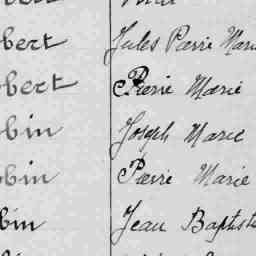 bert Jules Pierre Marie
bert Pierre Marie
bin Joseph Marie
bin Pierre Marie
bin Jean Baptiste